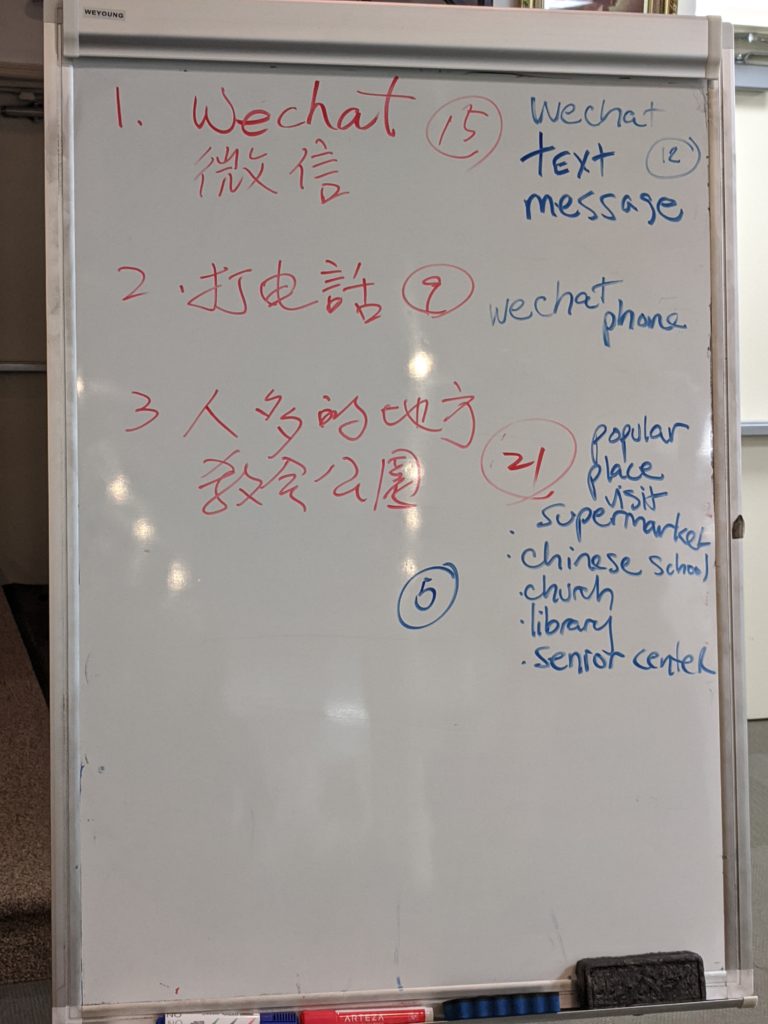 WEYOUNG
1. Wechat 15
微信
wechat
text 12
message
2. 打电話 9
wechat phone
3 人多的地方
教会公園 21
popular
place
visit
· supermarket
· chinese school
· church
· library
· senior center
5
ARTEZA